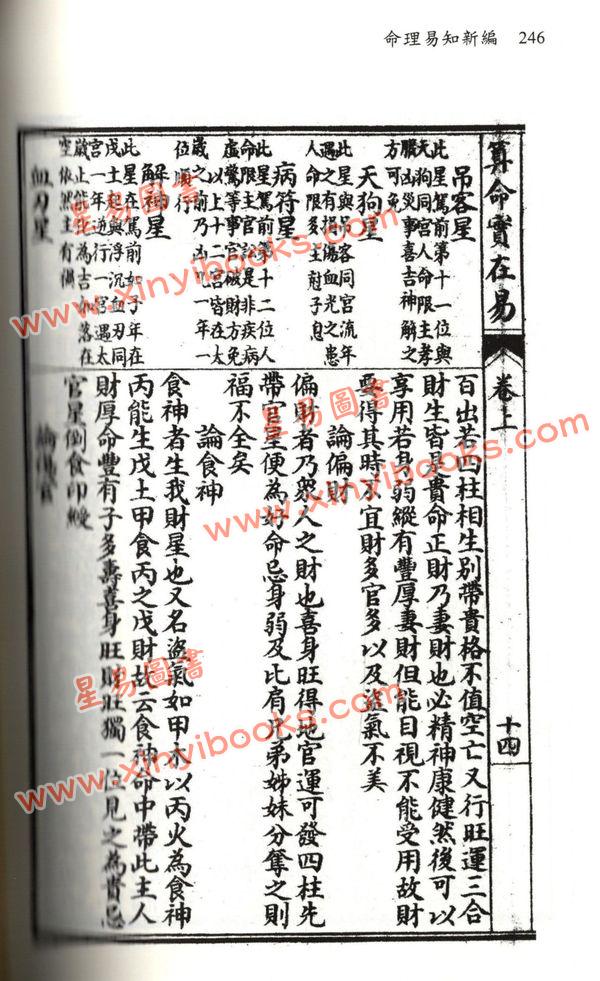 命理易知新編 246
算命實在易
卷上
十四
吊客星
此星駕前第十一位與
天狗同宮人命限主孝
服凶災事喜吉神解之
方可免
天狗星
此星與吊客同宮流年
遇之有損傷血光之患
人命限多主尅子息
病符星
此星駕前第十二位人
命限主官訟是非疾病
虛驚等事官破財方免
以上十二宮皆在太
歲之前乃凶 一年一
位順行
解神星
此星在駕前如子年在
戌土起與浮沉血刃同
宮一年逆行一宮遇太
歲上能化為吉如落在
空依然主有懼
血刃星
百出若四柱相生別帶貴格不值空亡又行旺運三合
財生皆是貴命正財乃妻財也必精神康健然後可以
享用若身弱縱有豐厚妻財但能目視不能受用故財
要得其時不宜財多官多以及盜氣不美
論偏財
偏財者乃眾人之財也喜身旺得地官運可發四柱先
帶官星便為好命忌身弱及比肩兄弟姊妹分奪之則
福不全矣
論食神
食神者生我財星也又名盜氣如甲木以丙火為食神
丙能生戊土甲食丙之戊財故云食神命中帶此主人
財厚命豐有子多壽喜身旺財旺獨一位見之為貴忌
官星倒食印綬
論傷官
星易圖書
www.xinyibooks.com
星易圖書
www.xinyibooks.com
星易圖書
www.xinyibooks.com
星易圖書
www.xinyibooks.com